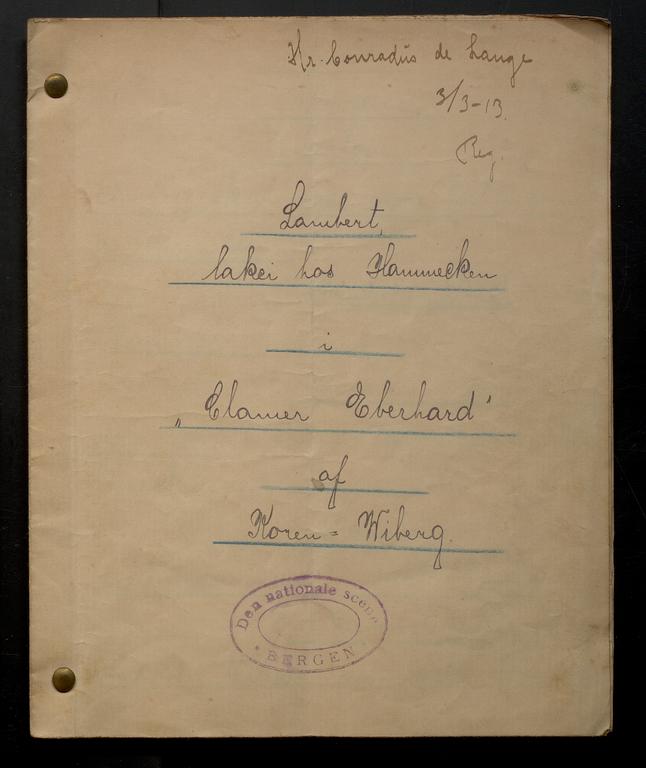 Hr. Conradus de Lange
3/3-13.
Reg.
Lambert,
lakei hos Hammecken
i
„Clamer Eberhard"
af
Koren = Wiberg.
Den nationale scene
BERGEN